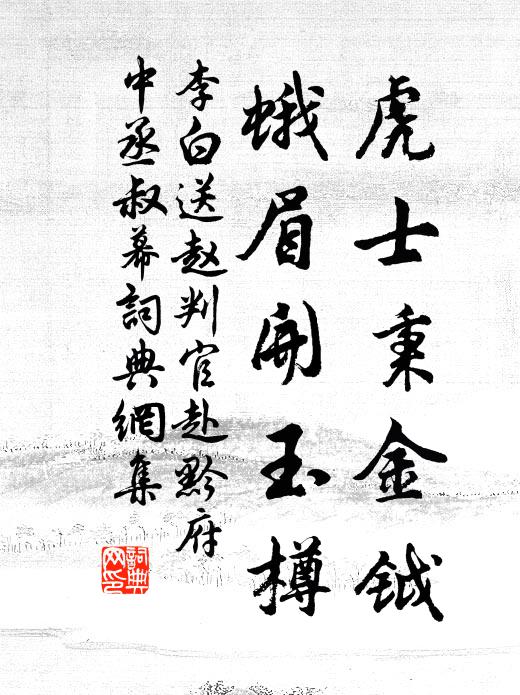 虎士秉金钺
蛾眉開玉樽
李白送赵判官赴黔府
中丞叔幕詞典網集
詞典
网印